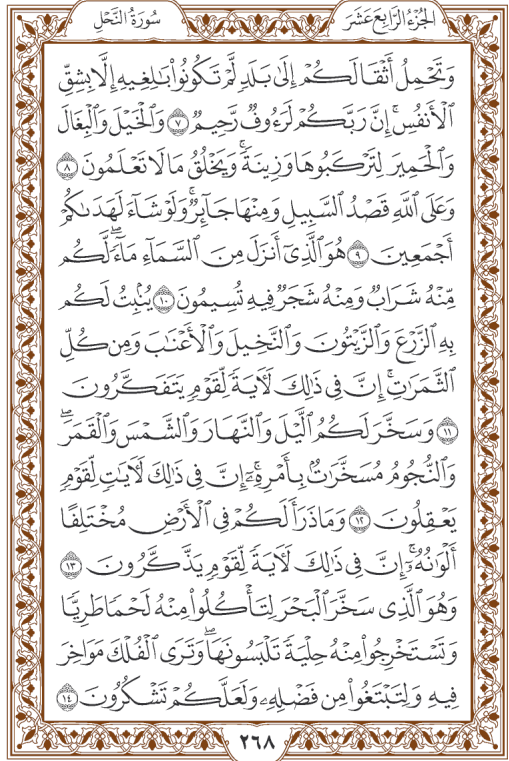 الجُزْءُ الرَّابِعَ عَشَرَ سُورَةُ النَّحْلِ
وَتَحْمِلُ أَثْقَالَكُمْ إِلَىٰ بَلَدٍ لَّمْ تَكُونُوا۟ بَٰلِغِيهِ إِلَّا بِشِقِّ
ٱلْأَنفُسِ ۚ إِنَّ رَبَّكُمْ لَرَءُوفٌ رَّحِيمٌ ٧ وَٱلْخَيْلَ وَٱلْبِغَالَ
وَٱلْحَمِيرَ لِتَرْكَبُوهَا وَزِينَةً ۚ وَيَخْلُقُ مَا لَا تَعْلَمُونَ ٨
وَعَلَى ٱللَّهِ قَصْدُ ٱلسَّبِيلِ وَمِنْهَا جَآئِرٌ ۚ وَلَوْ شَآءَ لَهَدَىٰكُمْ
أَجْمَعِينَ ٩ هُوَ ٱلَّذِىٓ أَنزَلَ مِنَ ٱلسَّمَآءِ مَآءً ۖ لَّكُم
مِّنْهُ شَرَابٌ وَمِنْهُ شَجَرٌ فِيهِ تُسِيمُونَ ١٠ يُنۢبِتُ لَكُم
بِهِ ٱلزَّرْعَ وَٱلزَّيْتُونَ وَٱلنَّخِيلَ وَٱلْأَعْنَٰبَ وَمِن كُلِّ
ٱلثَّمَرَٰتِ ۗ إِنَّ فِى ذَٰلِكَ لَءَايَةً لِّقَوْمٍ يَتَفَكَّرُونَ
١١ وَسَخَّرَ لَكُمُ ٱلَّيْلَ وَٱلنَّهَارَ وَٱلشَّمْسَ وَٱلْقَمَرَ ۖ
وَٱلنُّجُومُ مُسَخَّرَٰتٌۢ بِأَمْرِهِۦٓ ۗ إِنَّ فِى ذَٰلِكَ لَءَايَٰتٍ لِّقَوْمٍ
يَعْقِلُونَ ١٢ وَمَا ذَرَأَ لَكُمْ فِى ٱلْأَرْضِ مُخْتَلِفًا
أَلْوَٰنُهُۥٓ ۗ إِنَّ فِى ذَٰلِكَ لَءَايَةً لِّقَوْمٍ يَذَّكَّرُونَ ١٣
وَهُوَ ٱلَّذِى سَخَّرَ ٱلْبَحْرَ لِتَأْكُلُوا۟ مِنْهُ لَحْمًا طَرِيًّا
وَتَسْتَخْرِجُوا۟ مِنْهُ حِلْيَةً تَلْبَسُونَهَا ۖ وَتَرَى ٱلْفُلْكَ مَوَاخِرَ
فِيهِ وَلِتَبْتَغُوا۟ مِن فَضْلِهِۦ وَلَعَلَّكُمْ تَشْكُرُونَ ١٤
٢٦٨